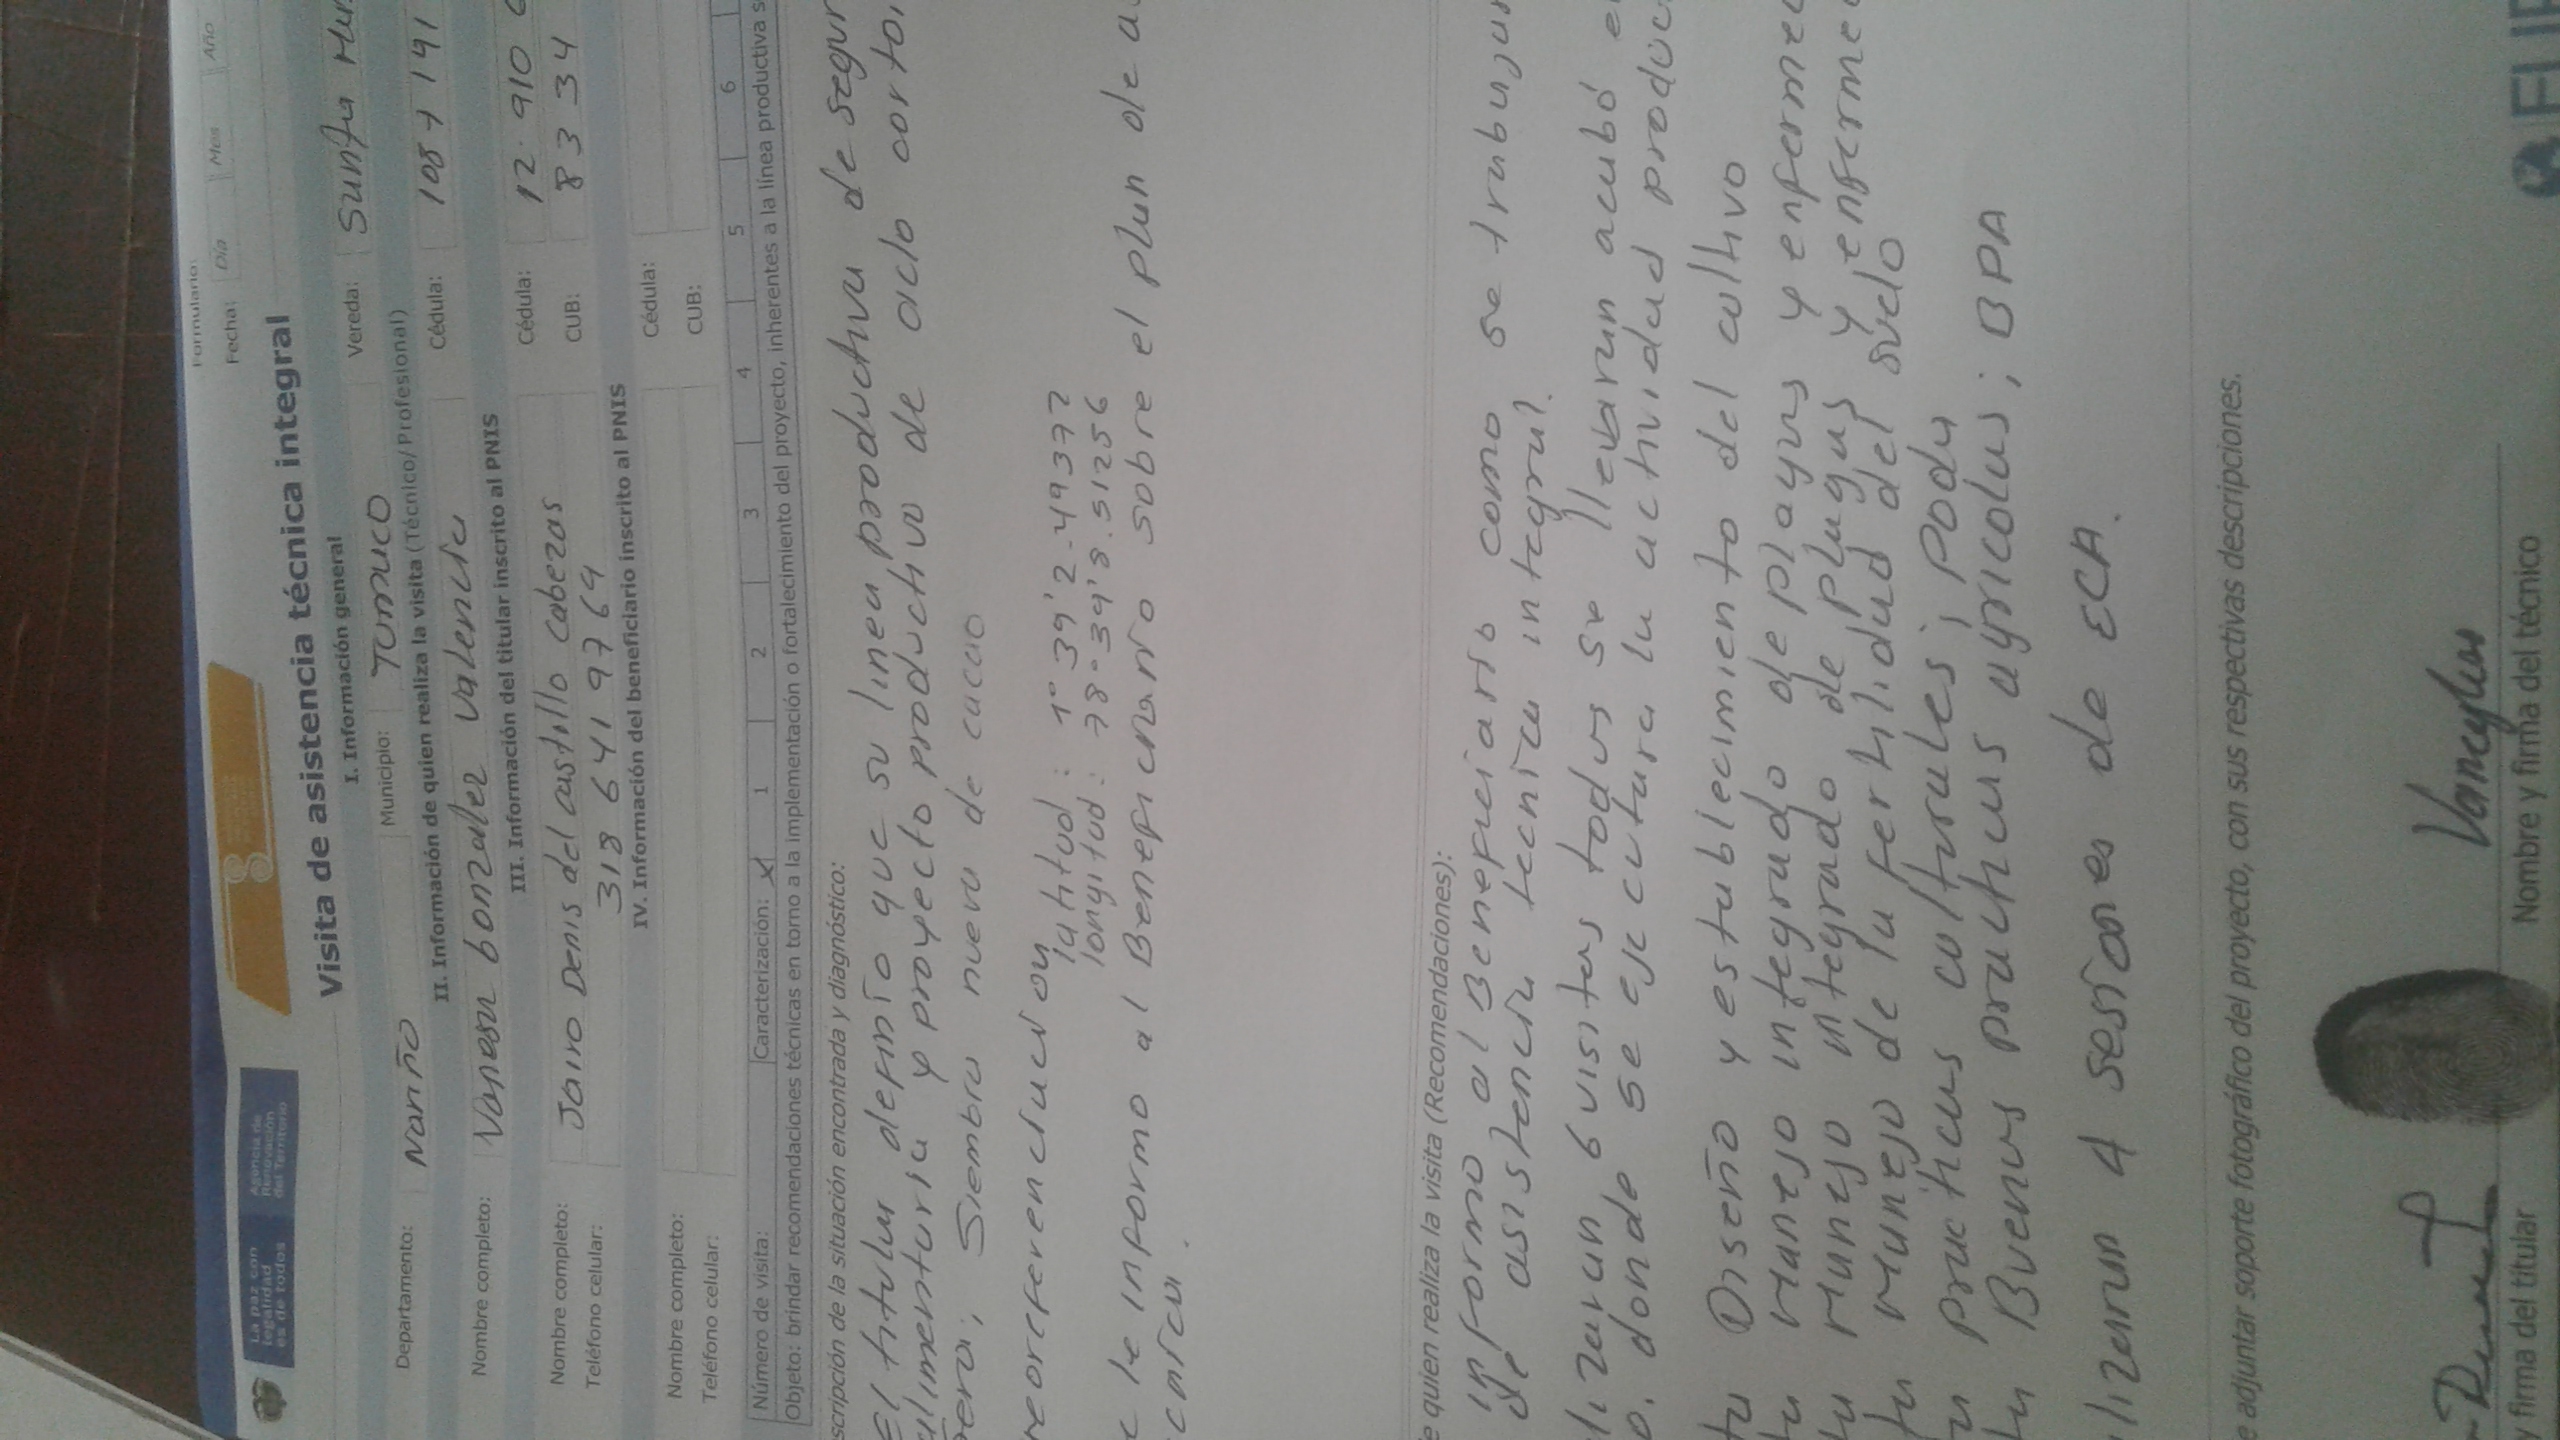 La paz con
legalidad
es de todos
Agencia de
Renovación
del Territorio
Formulario:
Fecha: Día Mes Año
Visita de asistencia técnica integral
I. Información general
Departamento: Nariño Municipio: Tumaco Vereda: Santa
II. Información de quien realiza la visita (Técnico/Profesional)
Nombre completo: Vanesa Gonzalez Valencia Cédula: 1087 191
III. Información del titular inscrito al PNIS
Nombre completo: Jairo Denis del castillo Cabezas Cédula: 12.910
Teléfono celular: 318 641 97 64 CUB: 8334
IV. Información del beneficiario inscrito al PNIS
Nombre completo: Cédula:
Teléfono celular: CUB:
Número de visita: Caracterización: X 1 2 3 4 5 6
Objeto: brindar recomendaciones técnicas en torno a la implementación o fortalecimiento del proyecto, inherentes a la línea productiva
scripción de la situación encontrada y diagnóstico:
El titular definio que su linea productiva de segur
alimentaria y proyecto productivo de ciclo corto
Siembra nueva de cacao
eoreferenciacion
latitud: 1° 39' 2.49372
longitud: 78° 39' 8.51256
le informo al Beneficiario sobre el plan de
e quien realiza la visita (Recomendaciones):
informo al Beneficiario como se trabajar
de asistencia tecnica integral.
lizaran 6 visitas todas se llevaran acabó e
o. donde se ejecutara la actividad produc
ta Diseño y establecimiento del cultivo
ta Manejo integrado de plagas y enferme
ta Manejo integrado de plagas y enferme
ta Manejo de la fertilidad del suelo
ta practicas culturales; Poda
ta Buenas practicas agricolas; BPA
lizaran 4 sesiones de ECA.
e adjuntar soporte fotográfico del proyecto, con sus respectivas descripciones.
y firma del titular
Nombre y firma del técnico